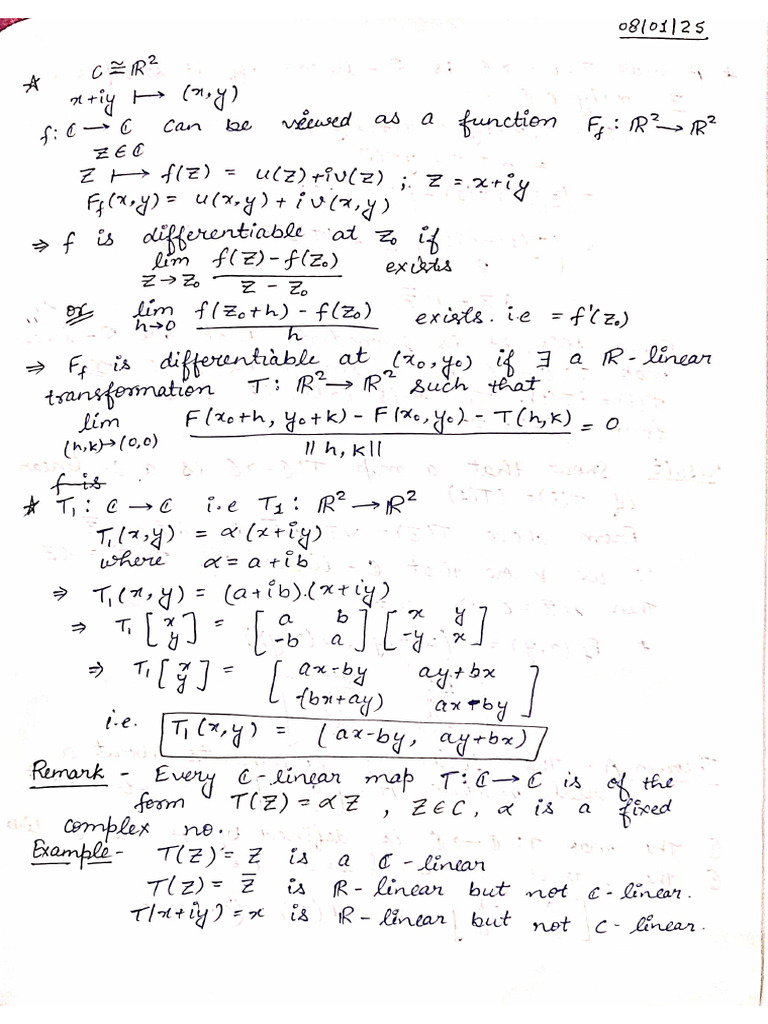 08/01/25
* C ≅ R²
x+iy ⟼ (x,y)
f: C → C can be viewed as a function F_f : R² → R²
z ∈ C
z ⟼ f(z) = u(z)+iv(z) ; z = x+iy
F_f(x,y) = u(x,y) + i v(x,y)
⇒ f is differentiable at z₀ if
lim_{z→z₀} (f(z) - f(z₀))/(z - z₀) exists.
or lim_{h→0} (f(z₀+h) - f(z₀))/h exists. i.e = f'(z₀)
⇒ F_f is differentiable at (x₀,y₀) if ∃ a R-linear
transformation T: R² → R² such that
lim_{(h,k)→(0,0)} (F(x₀+h, y₀+k) - F(x₀,y₀) - T(h,k))/||h,k|| = 0
f is
* T₁ : C → C i.e T₁ : R² → R²
T₁(x,y) = α(x+iy)
where α = a+ib
⇒ T₁(x,y) = (a+ib).(x+iy)
⇒ T₁ [x y] = [a b; -b a] [x y; -y x]
⇒ T₁ [x y] = [ax-by ay+bx; -(bx+ay) ax-by]
i.e. T₁(x,y) = (ax-by, ay+bx)
Remark - Every C-linear map T: C → C is of the
form T(z) = αz , z∈C, α is a fixed
complex no.
Example - T(z) = z is a C-linear
T(z) = z̄ is R-linear but not C-linear.
T(x+iy) = x is R-linear but not C-linear.